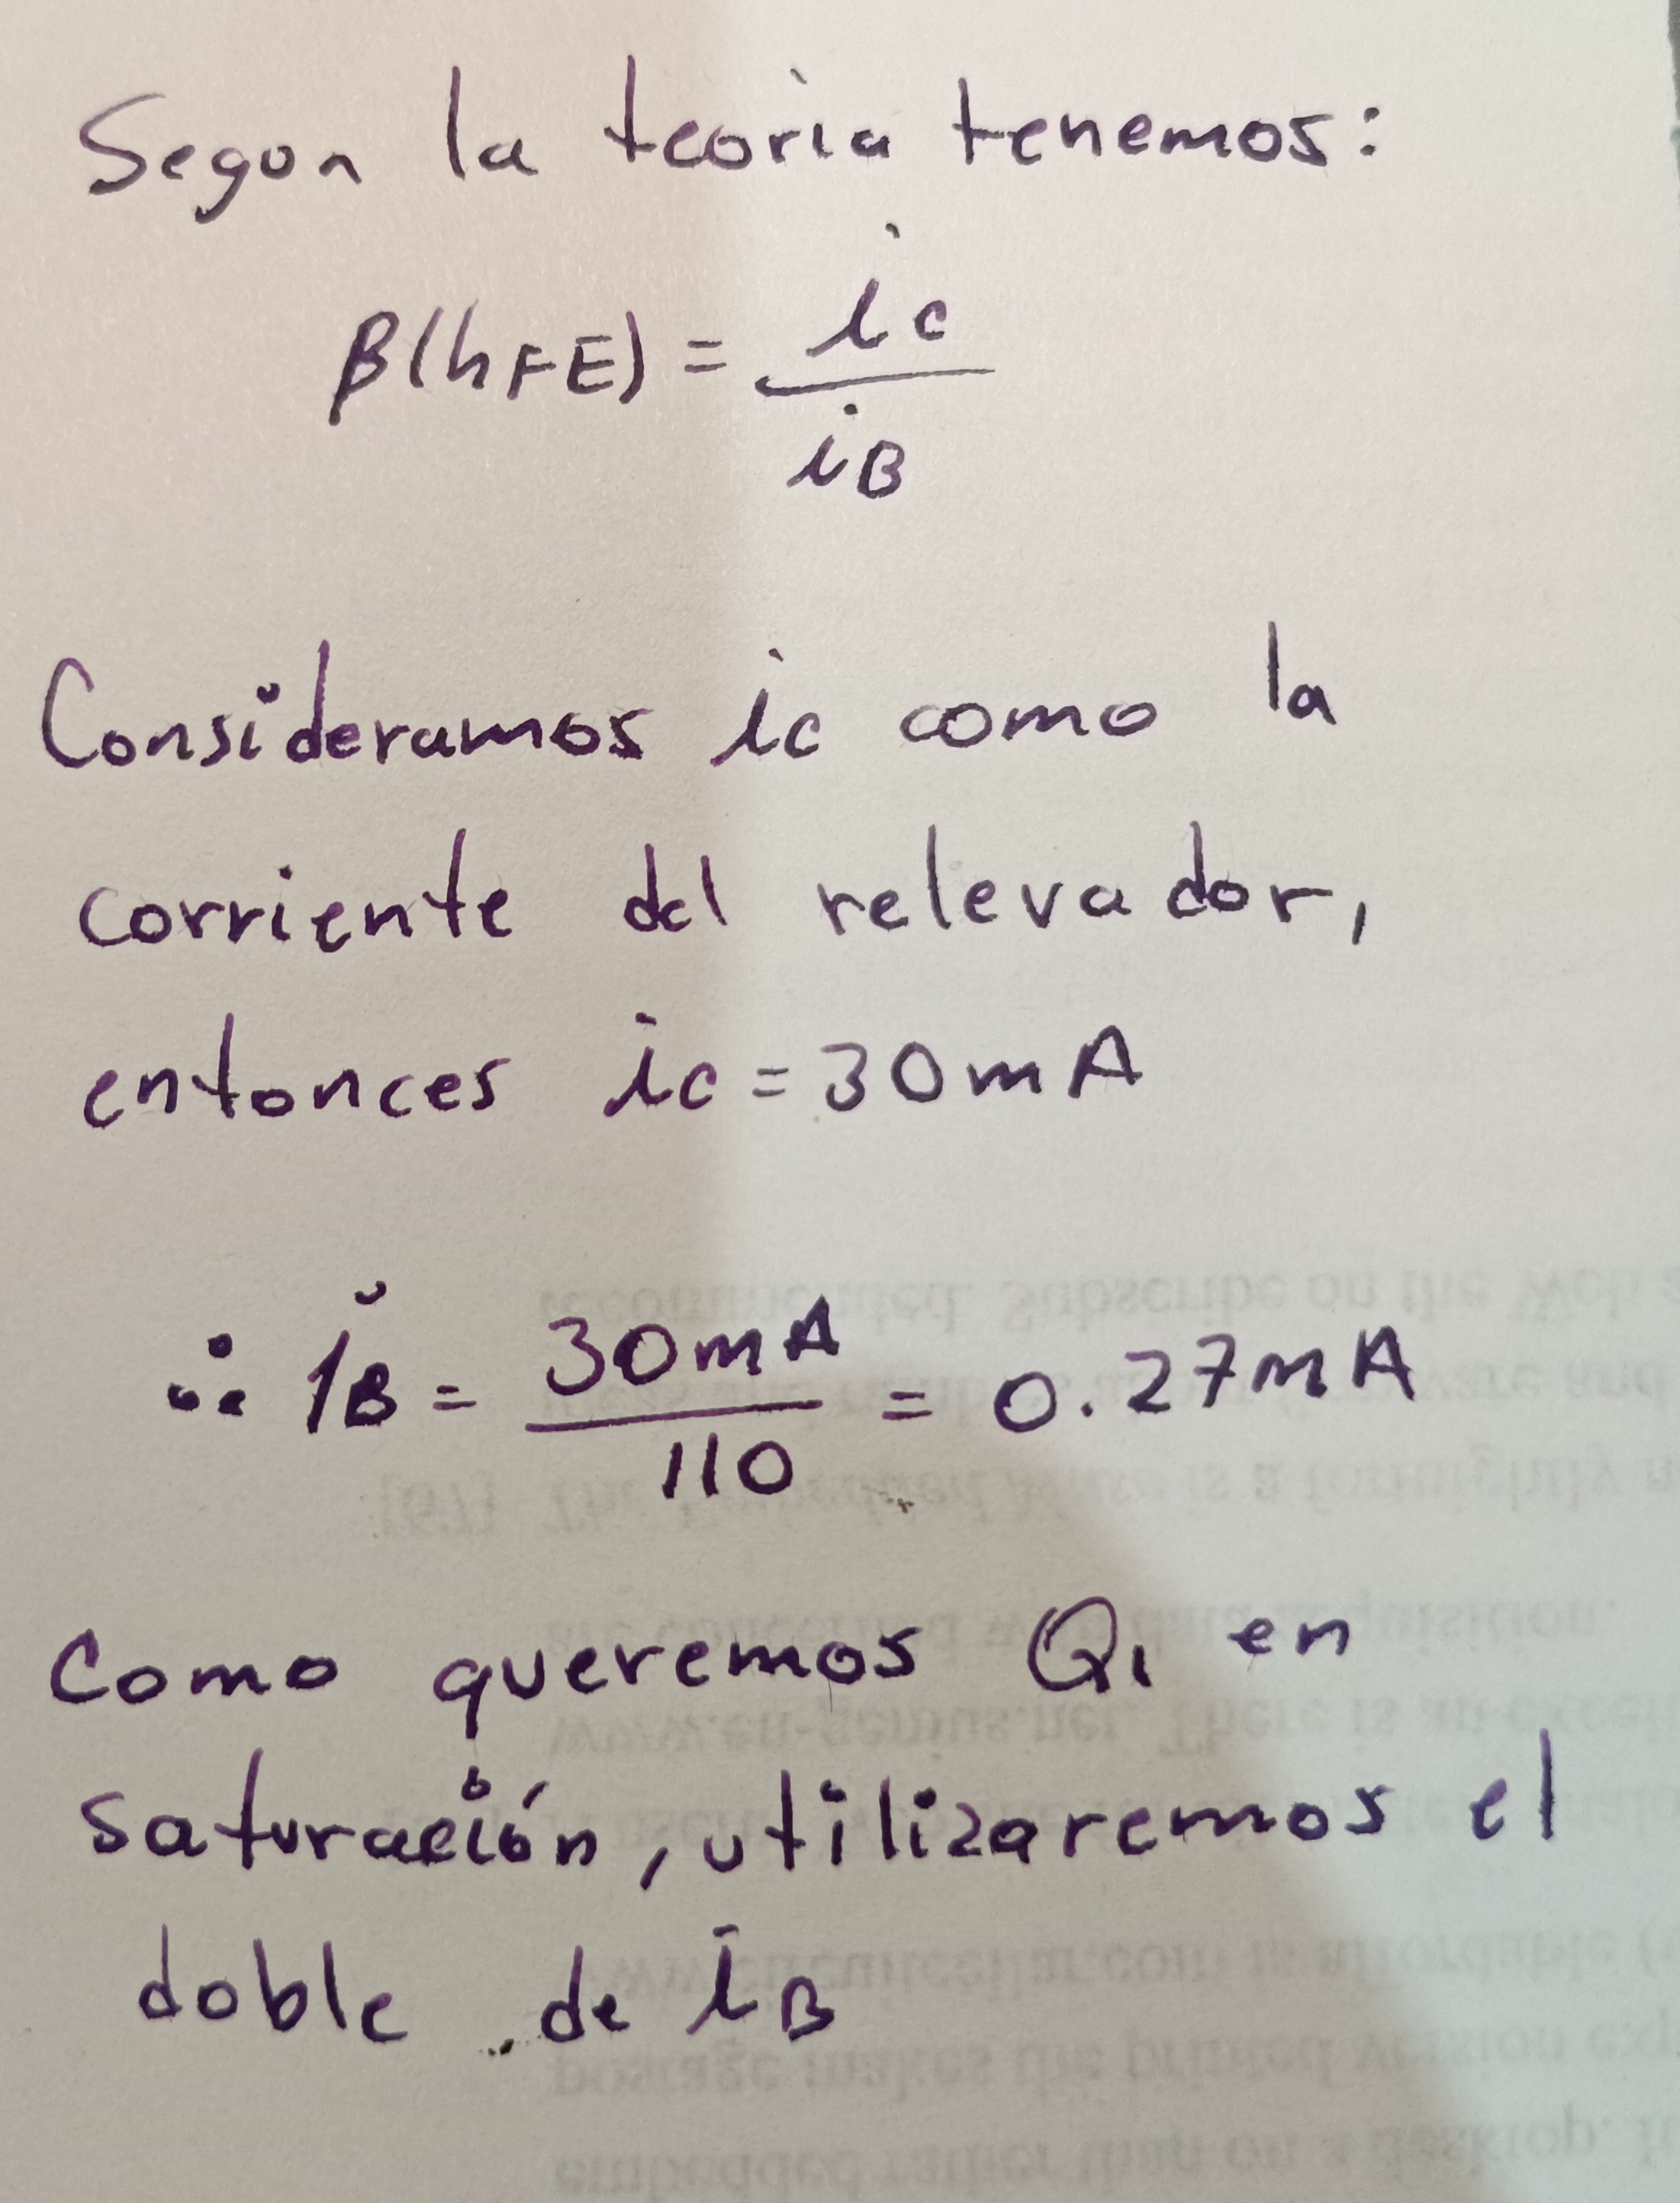 Segun la teoria tenemos:
β(hFE) = ic / iB
Consideramos ic como la
corriente del relevador,
entonces ic = 30mA
∴ iB = 30mA / 110 = 0.27mA
Como queremos Q1 en
saturación, utilizaremos el
doble de iB